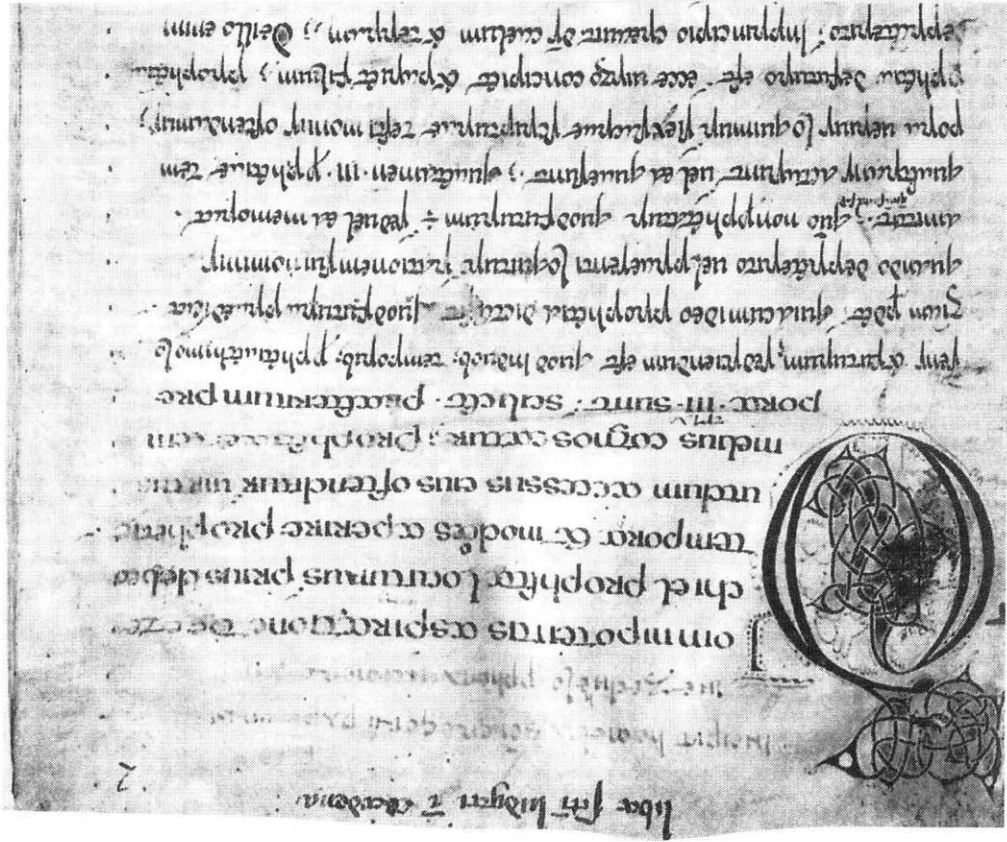 liber sc̄i ludgeri ī Werdena
2.
Incipit
omnipotentis aspiratione de eze
chiel prophæta locuturus prius debeo
tempora & modos aperire prophetiæ
ut dum accessus eius ostenditur uirtus
melius cognoscatur; prophætiæ tem
pora · III · sunt · scilicet · præteritum pre
sens & futurum; sciendum est quod induob; temporib; pphætia ethimolo
giam pdit, quia cum ideo prophætia dicta sit quod futura prædicat
quando depræterito uel præsenti loquitur rationem sui nominis
amittit; quō nonpphætatur quodfuturum ÷ sed uel ea memorat
quæ gesta sunt uel ea quæ sunt; quætamen · III · pphætiæ tem
pora ueraciter loquimur si ex scripturæ testimoniis ostendamus;
pphætia defuturo est ecce uirgo concipiet & pariet filium; prophætia
depræterito; Inprincipio creauit dS caelum & terram; De illo enim